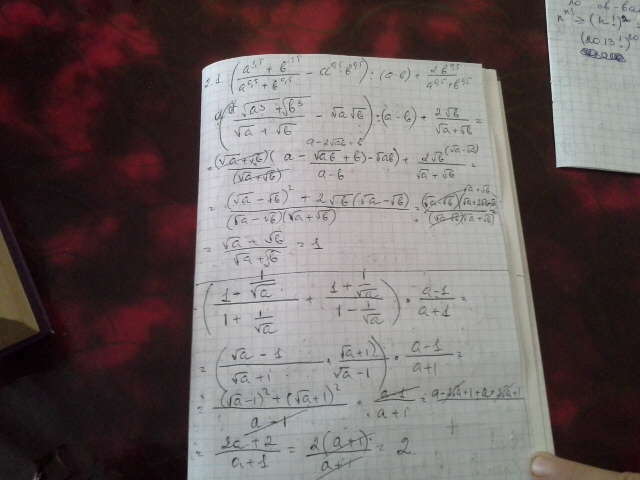 2.1 (a^1,5 + b^1,5 / a^0,5 + b^0,5 − a^0,5 b^0,5) : (a−b) + 2b^0,5 / a^0,5 + b^0,5
(√a³ + √b³ / √a + √b − √a√b) : (a−b) + 2√b / √a+√b =
a−2√ab+b
= (√a+√b)(a − √ab + b) − √ab) / (√a+√b) a−b + 2√b (√a−√b) / √a+√b =
= (√a−√b)² + 2√b(√a−√b) / (√a−√b)(√a+√b) =
= √a + √b / √a+√b = 1
(1 − 1/√a / 1 + 1/√a + 1 + 1/√a / 1 − 1/√a) · a−1 / a+1 =
= (√a − 1 / √a + 1 + √a+1 / √a−1) · a−1 / a+1 =
= (√a−1)² + (√a+1)² / a−1 · a−1 / a+1 = a−2√a+1+a+2√a+1
= 2a+2 / a+1 = 2(a+1) / a+1 = 2
n^n > (n!)²